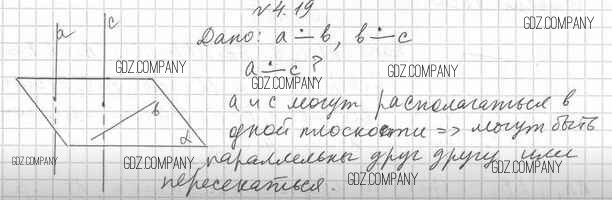 №4.19
Дано: a ∸ b, b ∸ c
a ∸ c?
a и c могут располагаться в
одной плоскости => могут быть
параллельны друг другу или
пересекаться.
a
c
b
α
GDZ.COMPANY
GDZ.COMPANY
GDZ.COMPANY
GDZ.COMPANY
GDZ.COMPANY
GDZ.COMPANY
GDZ.COMPANY
GDZ.COMPANY